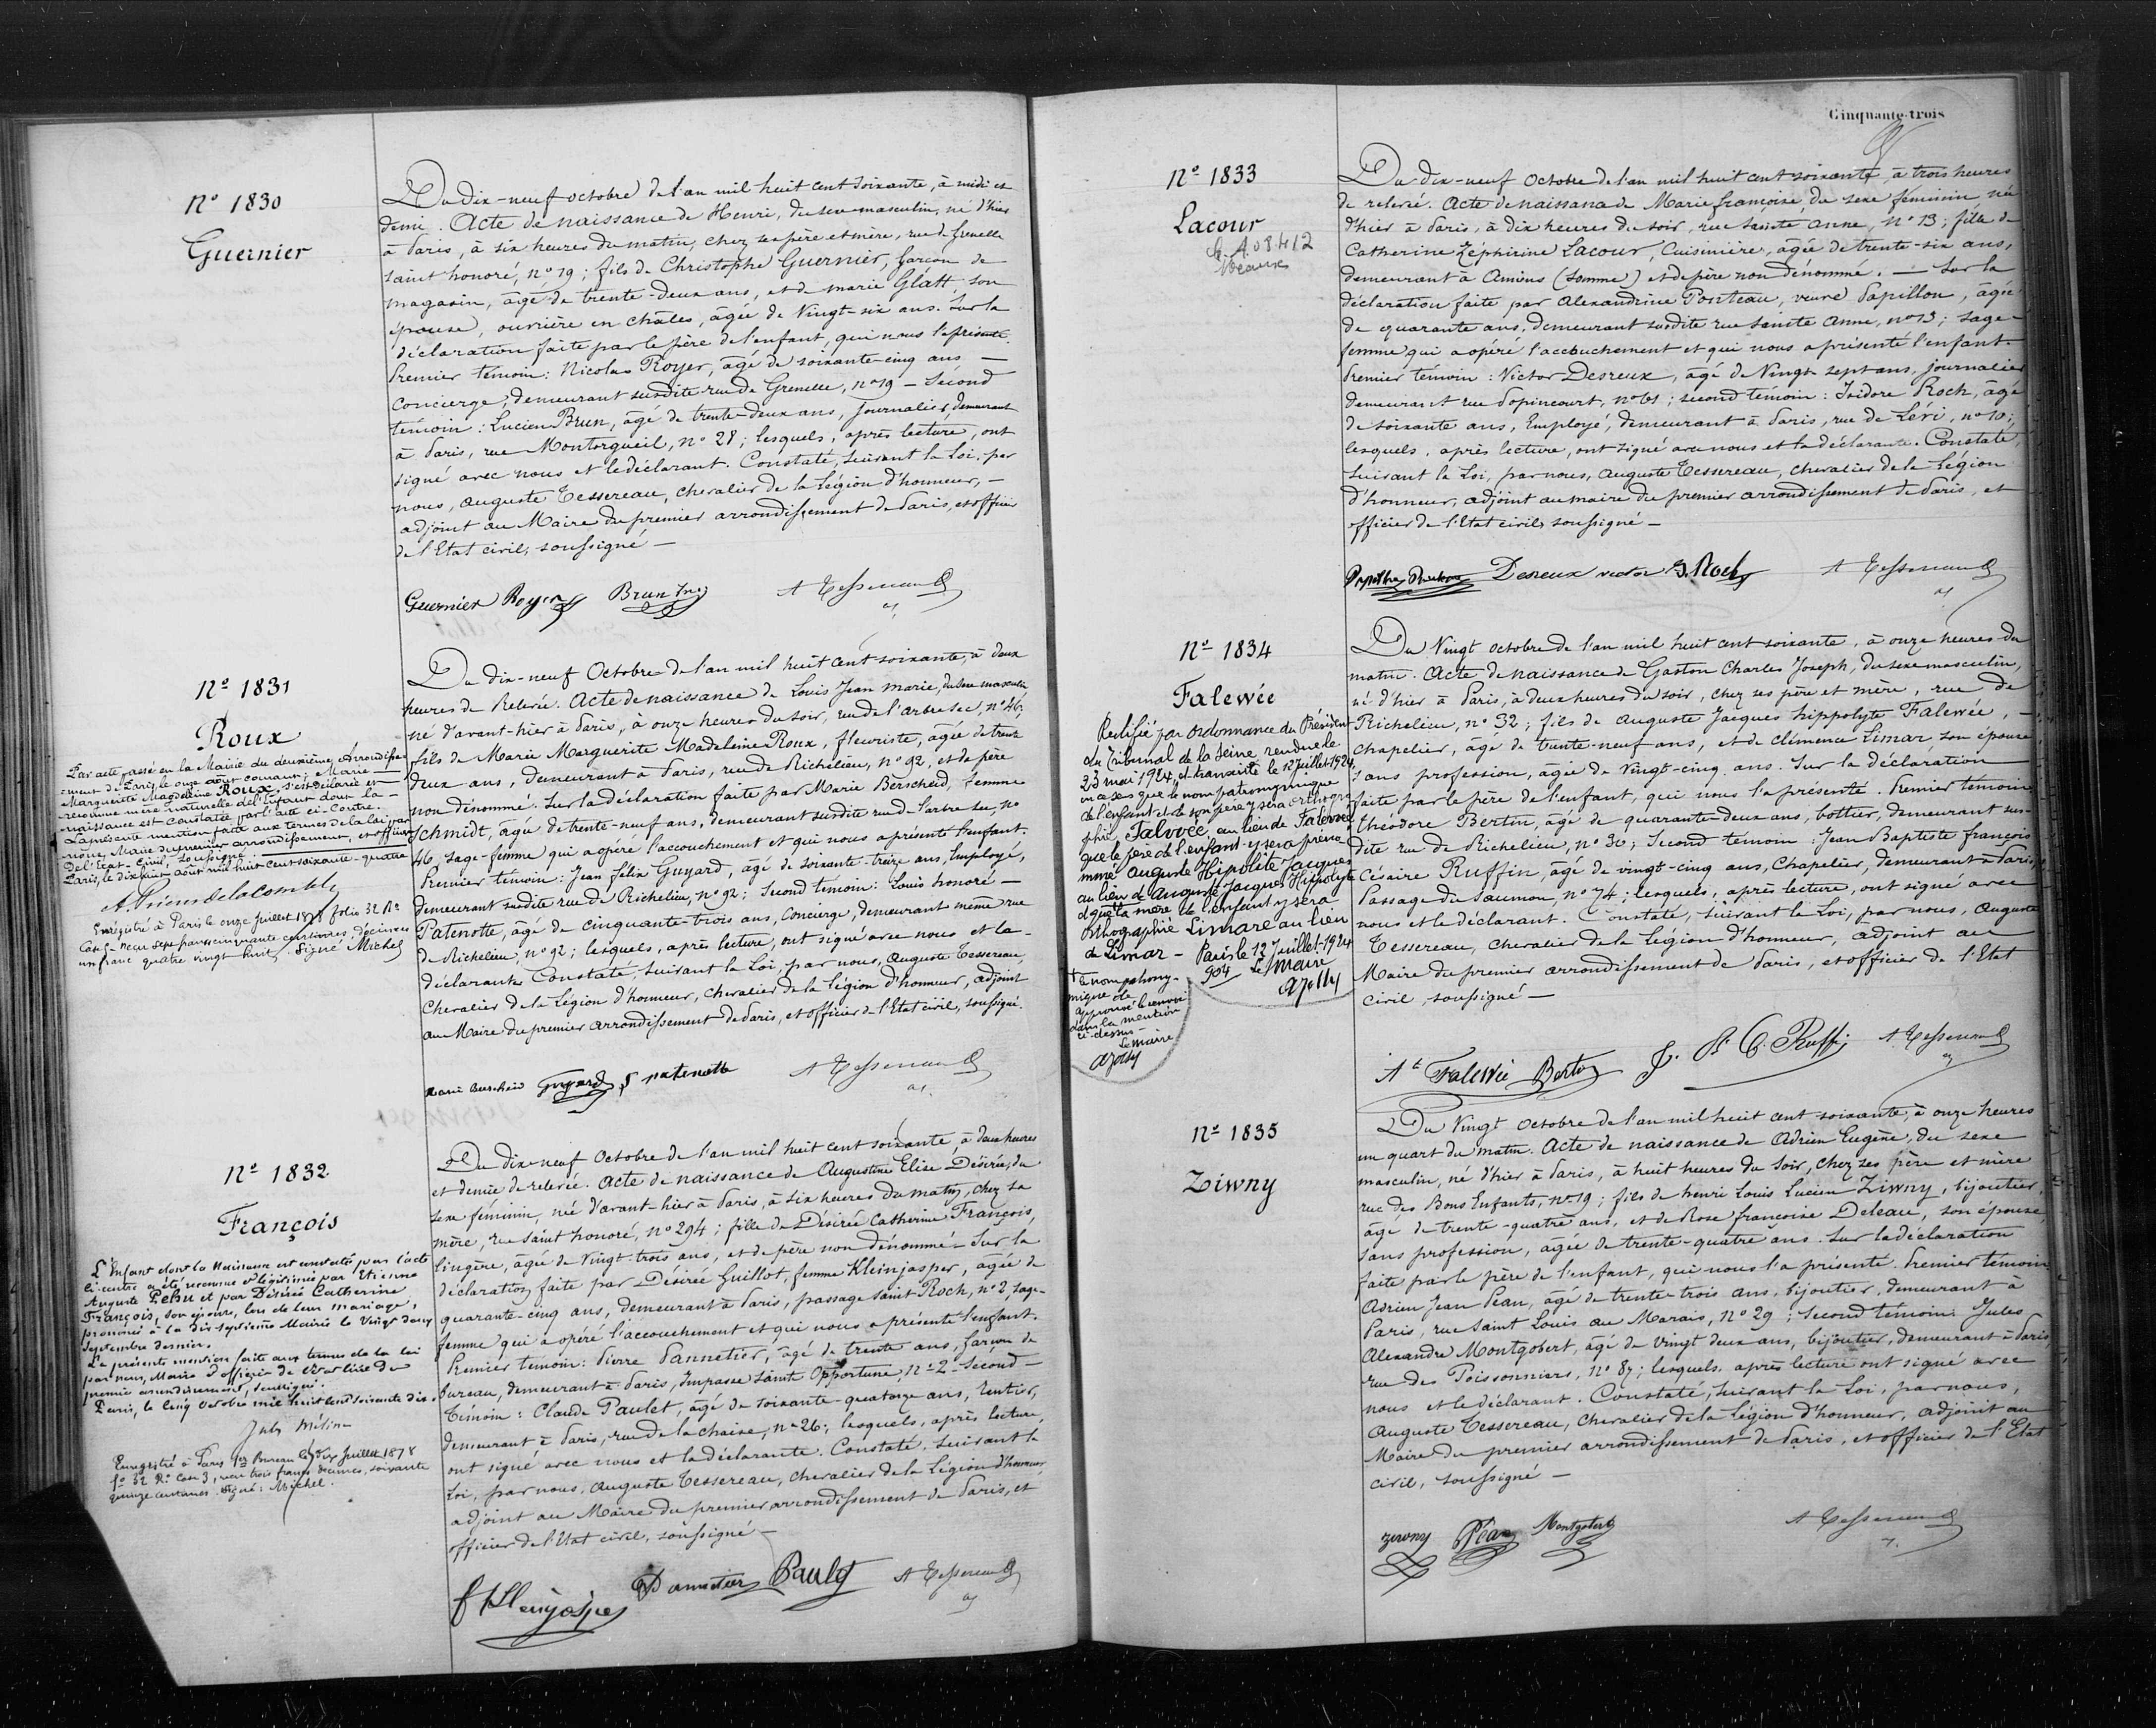 Nº 1830
Guernier
Du dix-neuf octobre de l'an mil huit cent soixante, à midi et
demi. Acte de naissance de Henri, du sexe masculin, né d'hier
à Paris, à six heures du matin, chez ses père et mère, rue de Grenelle
saint honoré, nº 19; fils de Christophe Guernier, garçon de
magasin, âgé de trente-deux ans, et de marie Glatt, son
épouse, ouvrière en châles, âgée de Vingt-six ans. Sur la
déclaration faite par le père de l'enfant, qui nous l'a présenté.
Premier témoin: Nicolas Royer, âgé de soixante-cinq ans —
Concierge, demeurant susdite rue de Grenelle, nº 19 — Second
temoin: Lucien Brun, âgé de trente-deux ans, Journalier, demeurant
à Paris, rue Montorgueil, nº 28; lesquels, après lecture, ont
signé avec nous et le déclarant. Constaté, suivant la Loi, par
nous, auguste Tessereau, chevalier de la Légion d'honneur, —
adjoint au Maire du premier arrondissement de Paris, et officier
de l'Etat civil, soussigné —
Guernier Royer Brun A Tessereau
Nº 1831
Roux
Par acte passé en la Mairie du deuxième Arrondisse
-ment de Paris, le onze août courant, Marie —
Marguerite Magdeleine Roux s'est déclarée et
reconnue mère naturelle de l'Enfant dont la —
naissance est constatée par l'acte ci Contre.
La présente mention faite aux termes de la loi par
nous, Maire du premier arrondissement, et officier
de l'Etat-Civil, soussigné:
Paris, le dix huit août mil huit cent soixante-quatre
Enregistré à Paris le onze juillet 1878 folio 32 Rº
Case 2 reçu sept francs cinquante centimes, décimes
un franc quatre vingt huit. Signé Michel
Du dix-neuf Octobre de l'an mil huit cent soixante, à deux
heures de Relevée. Acte de naissance de Louis Jean marie, du sexe masculin,
né d'avant-hier à Paris, à onze heures du soir, rue de l'arbre sec, nº 46,
fils de Marie Marguerite Madeleine Roux, fleuriste, âgée de trente
deux ans, demeurant à Paris, rue de Richelieu, nº 92, et de père
non dénommé. Sur la déclaration faite par Marie Berscheid, femme
Schmidt, âgée de trente-neuf ans, demeurant susdite rue de l'arbre sec, nº
46, sage-femme qui a opéré l'accouchement et qui nous a présenté l'enfant.
Premier témoin: Jean félix Guyard, âgé de soixante-treize ans, Employé,
demeurant susdite rue de Richelieu, nº 92; Second temoin: Louis honoré —
Patenotte, âgé de cinquante-trois ans, Concierge, demeurant même rue
de Richelieu, nº 92; lesquels, après lecture, ont signé avec nous et la —
déclarante. Constaté, suivant la Loi, par nous, Auguste Tessereau,
Chevalier de la Légion d'honneur, chevalier de la Légion d'honneur, adjoint
au Maire du premier arrondissement de Paris, et officier de l'Etat civil, soussigné.
Marie Berscheid Guyard patenotte A Tessereau
Nº 1832
François
L'Enfant dont la Naissance est constatée par l'acte
ci-contre a été reconnue et légitimée par Etienne
Auguste Pehu et par Désirée Catherine
François, son épouse, lors de leur mariage,
prononcé à la dix septième Mairie le Vingt deux
Septembre dernier.
La présente mention faite aux termes de la loi
par nous, Maire & officier de l'état civil du
premier arrondissement, soussigné:
Paris, le cinq octobre mil huit cent soixante dix.
Jules Méline
Enregistré à Paris 1er Bureau le dix juillet 1878
fº 32 Rº Case 3, reçu trois francs décimes, soixante
quinze centimes. Signé: Michel.
Du dix-neuf Octobre de l'an mil huit cent soixante, à deux heures
et demie de relevée. acte de naissance de Augustine Elise Désirée, du
sexe féminin, née d'avant-hier à Paris, à six heures du matin, chez sa
mère, rue saint honoré, nº 294; fille de Désirée Catherine François,
lingère, âgée de vingt-trois ans, et de père non dénommé — Sur la
déclaration faite par Désirée Guillot, femme Kleinjasper, âgée de
quarante-cinq ans, demeurant à Paris, passage saint Roch, nº 2, sage-
femme qui a opéré l'accouchement et qui nous a présenté l'enfant.
Premier temoin: Pierre Pannetier, âgé de trente ans, Garçon de
bureau, demeurant à Paris, Impasse Sainte Opportune, nº 2. Second —
Témoin: Claude Paulet, âgé de soixante-quatorze ans, Rentier,
demeurant à Paris, rue de la chaise, nº 26; lesquels, après lecture,
ont signé avec nous et la déclarante. Constaté, suivant la
Loi, par nous, auguste Tessereau, Chevalier de la Légion d'honneur
adjoint au Maire du premier arrondissement de Paris, et
officier de l'Etat civil, soussigné —
f Kleinjasper Pannetier Paulet A Tessereau
Cinquante-trois
Nº 1833
Lacour
Meaux
Du dix-neuf Octobre de l'an mil huit cent soixante, à trois heures
de relevée. Acte de naissance de Marie françoise, du sexe féminin, née
d'hier à Paris, à dix heures du soir, rue sainte anne, nº 13; fille de
Catherine Zéphirine Lacour, Cuisinière, âgée de trente-six ans,
demeurant à Amiens (Somme) et de père non dénommé. — Sur la
déclaration faite par Alexandrine Ponteau, veuve Papillon, âgée
de quarante ans, demeurant susdite rue Sainte Anne, nº 13; sage-
femme qui a opéré l'accouchement et qui nous a présenté l'enfant.
Premier témoin: Victor Desreux, âgé de Vingt-sept ans, journalier
demeurant rue Popincourt, nº 61; second témoin: Isidore Roch, âgé
de soixante ans, Employé, demeurant à Paris, rue de Lévi, nº 10;
lesquels, après lecture, ont signé avec nous et la déclarante. Constaté,
suivant la Loi, par nous, Auguste Tessereau, chevalier de la Légion
d'honneur, adjoint au maire du premier arrondissement de Paris, et
officier de l'Etat civil, soussigné —
Desreux victor J. Roch A Tessereau
Nº 1834
Falewée
Rectifié par ordonnance du Président
du Tribunal de la Seine, rendue le
23 mai 1924, et transcrite le 12 juillet 1924,
en ce sens que le nom patronymique
de l'enfant et de son père y sera orthogra
phié Falvée au lieu de Falewée,
que le père de l'enfant y sera préno
mmé Auguste Hipolite Jacques
au lieu de Auguste Jacques Hippolyte
et que la mère de l'enfant y sera
orthographié Limare au lieu
de Limar — Paris le 12 juillet 1924
904 Le Maire
+ le nom patrony-
mique de
approuvé le renvoi
dans la mention
ci-dessus —
Le maire
Du Vingt octobre de l'an mil huit cent soixante, à onze heures du
matin. Acte de naissance de Gaston Charles Joseph, du sexe masculin,
né d'hier à Paris, à deux heures du soir, chez ses père et mère, rue de
Richelieu, nº 32; fils de Auguste Jacques hippolyte Falewée, —
Chapelier, âgé de trente-neuf ans, et de clémence Limar, son épouse
sans profession, âgée de vingt-cinq ans. Sur la déclaration
faite par le père de l'enfant, qui nous l'a présenté. Premier témoin
théodore Bertin, âgé de quarante-deux ans, bottier, demeurant sus-
dite rue de Richelieu, nº 30; Second temoin: Jean Baptiste françois
Césaire Ruffin, âgé de vingt-cinq ans, chapelier, demeurant à Paris,
Passage du Saumon, nº 74; lesquels, après lecture, ont signé avec
nous et le déclarant. Constaté, suivant la Loi, par nous, Auguste
Tessereau, chevalier de la Légion d'honneur, adjoint au
Maire du premier arrondissement de Paris, et officier de l'Etat
civil, soussigné —
Ate Falewée Bertin J. B. C. Ruffin A Tessereau
Nº 1835
Ziwny
Du Vingt octobre de l'an mil huit cent soixante, à onze heures
un quart du matin. Acte de naissance de Adrien Eugène, du sexe
masculin, né d'hier à Paris, à huit heures du soir, chez ses père et mère
rue des Bons Enfants, nº 19; fils de henri Louis Lucien Ziwny, bijoutier,
âgé de trente-quatre ans, et de Rose francoise Deleau, son épouse,
sans profession, âgée de trente-quatre ans. Sur la déclaration
faite par le père de l'enfant, qui nous l'a présenté. Premier témoin
Adrien Jean Péan, âgé de trente-trois ans, bijoutier, demeurant à
Paris, rue Saint Louis au Marais, nº 29; Second témoin: Jules
Alexandre Montgobert, âgé de vingt deux ans, bijoutier, demeurant à Paris,
rue des Poissonniers, nº 87; lesquels, après lecture ont signé avec
nous et le déclarant. Constaté, suivant la Loi, par nous,
Auguste Tessereau, Chevalier de la Légion d'honneur, adjoint au
Maire du premier arrondissement de Paris, et officier de l'Etat
civil, soussigné —
Péan Montgobert A Tessereau